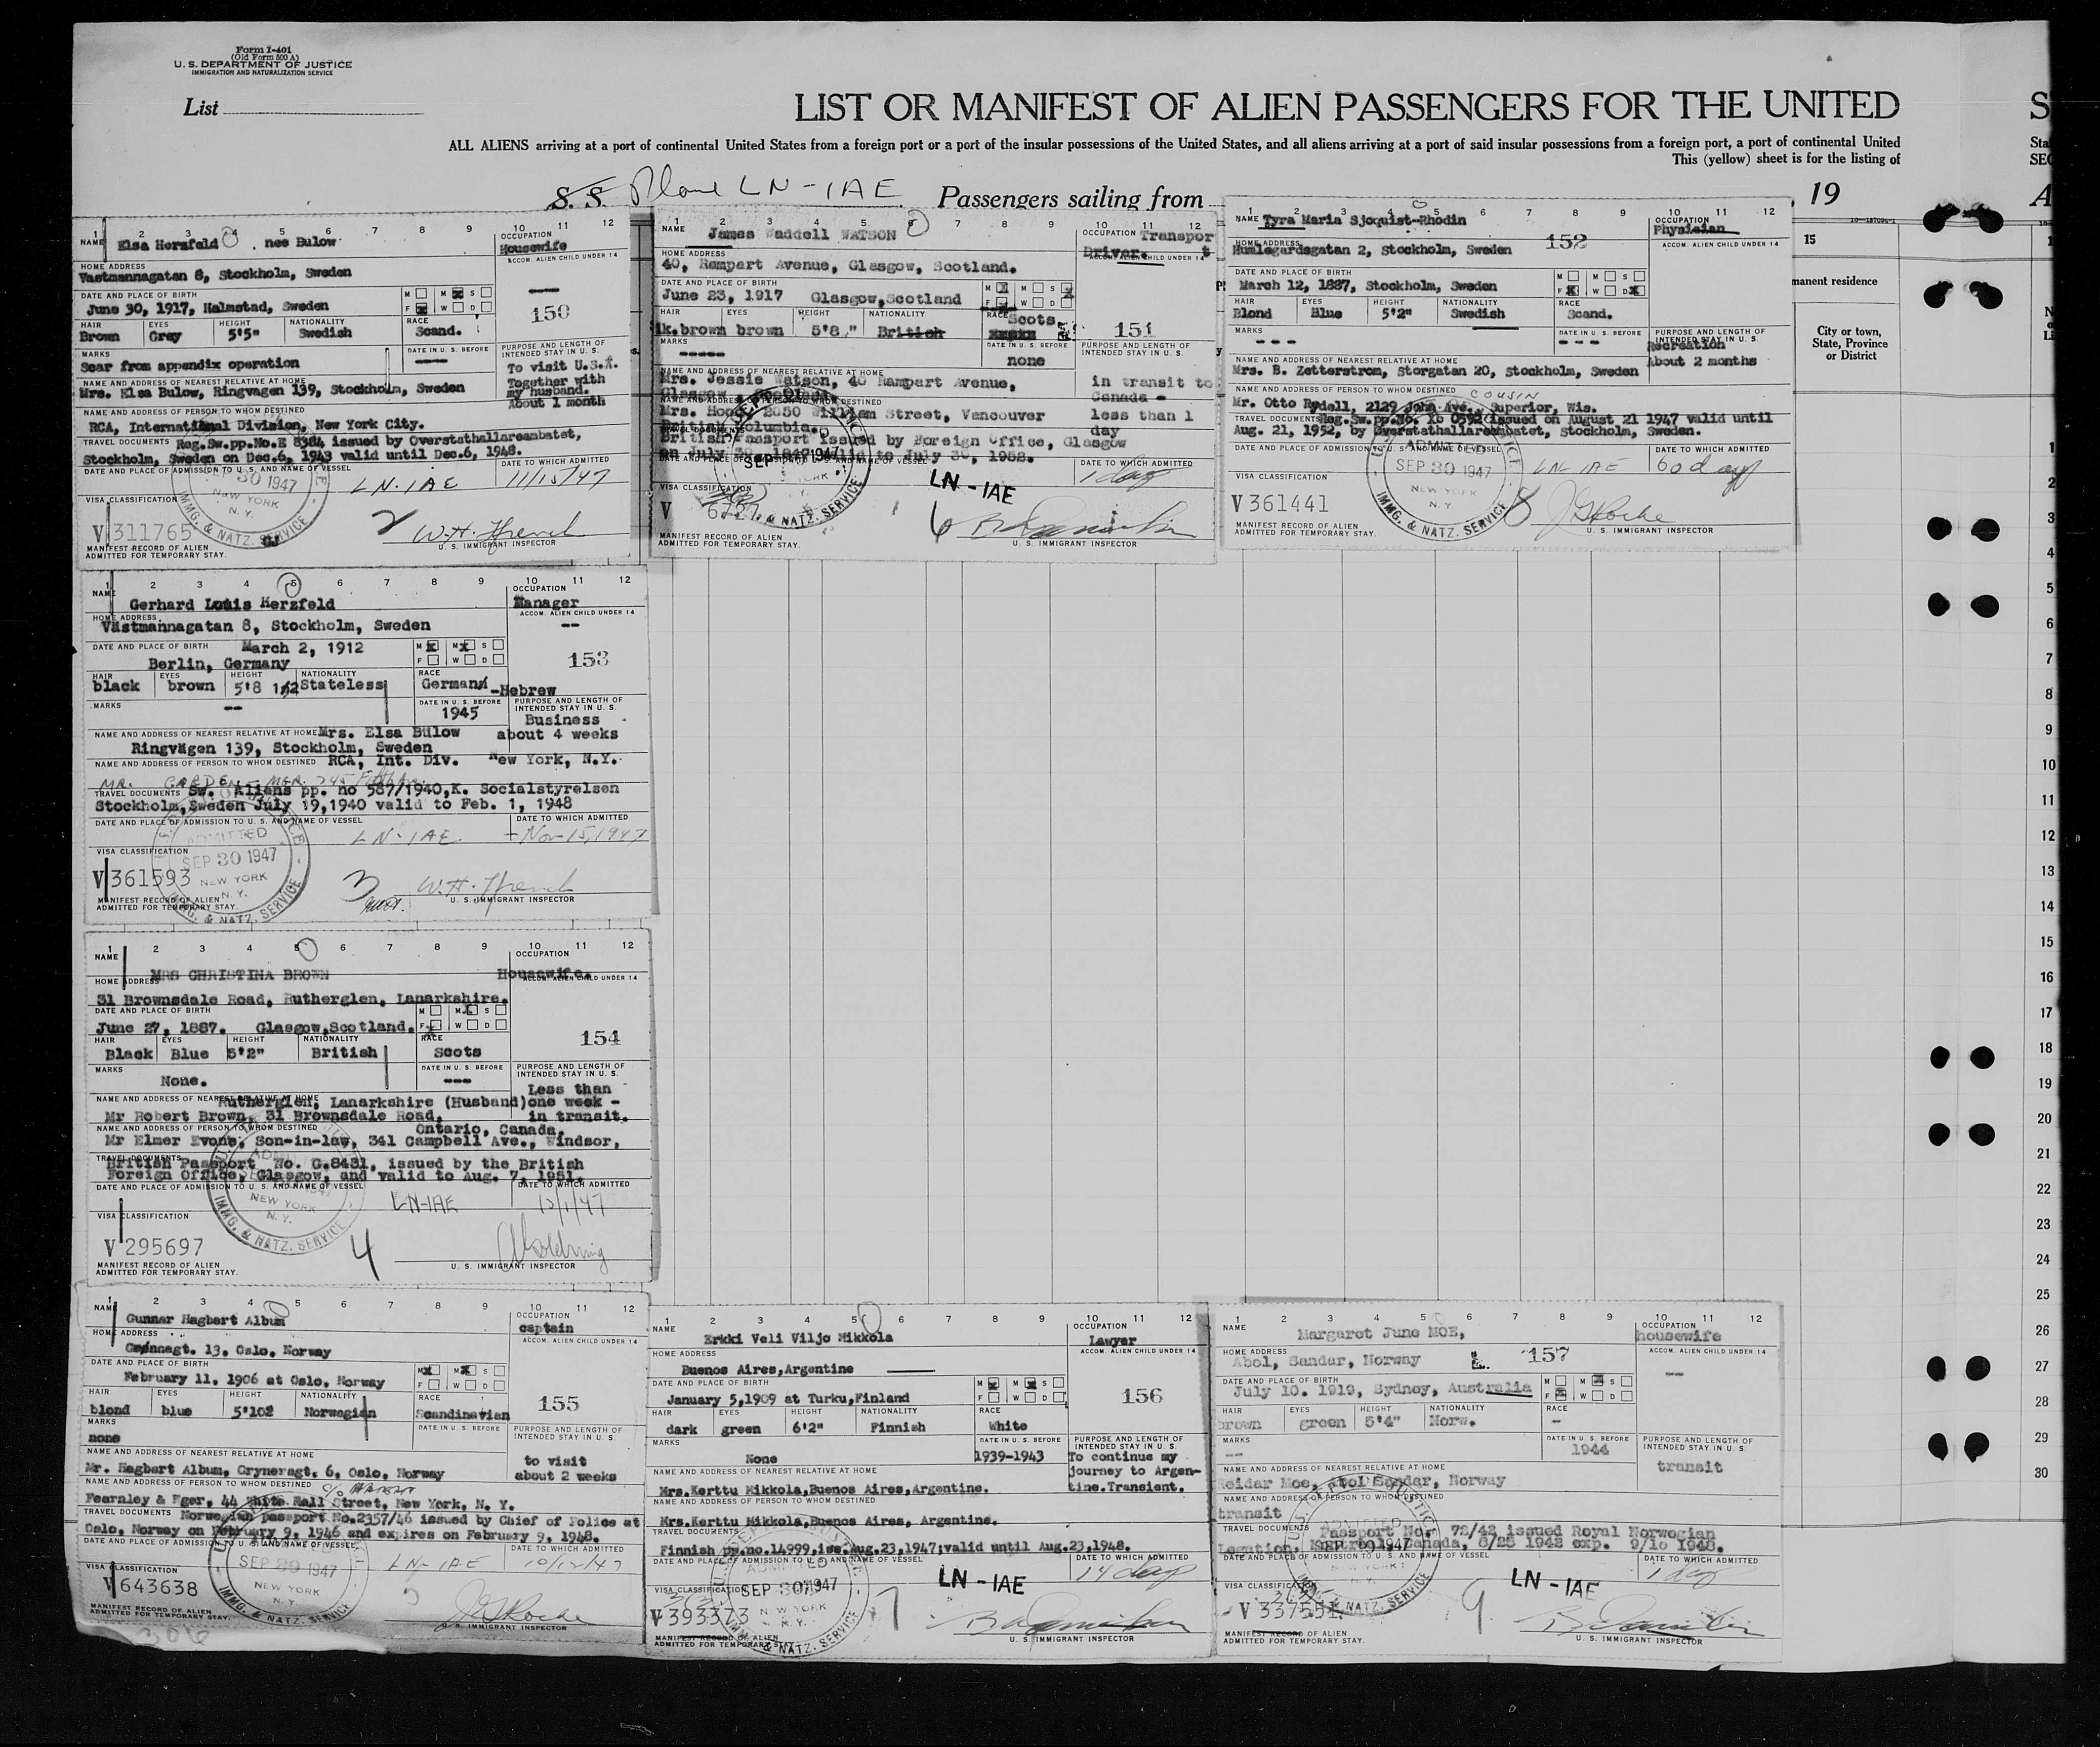 Form I-401
(Old Form 500 A)
U. S. DEPARTMENT OF JUSTICE
IMMIGRATION AND NATURALIZATION SERVICE
List
LIST OR MANIFEST OF ALIEN PASSENGERS FOR THE UNITED
ALL ALIENS arriving at a port of continental United States from a foreign port or a port of the insular possessions of the United States, and all aliens arriving at a port of said insular possessions from a foreign port, a port of continental United
This (yellow) sheet is for the listing of
S. S. Plane LN-IAE Passengers sailing from , 19
1 2 3 4 5 6 7 8 9 10 11 12
NAME Elsa Herzfeld nee Bulow
OCCUPATION Housewife
ACCOM. ALIEN CHILD UNDER 14
HOME ADDRESS
Vastmannagatan 8, Stockholm, Sweden
DATE AND PLACE OF BIRTH M M S
June 30, 1917, Halmstad, Sweden F W D
150
HAIR EYES HEIGHT NATIONALITY RACE
Brown Gray 5'5" Swedish Scand.
MARKS DATE IN U. S. BEFORE PURPOSE AND LENGTH OF INTENDED STAY IN U. S.
Scar from appendix operation
To visit U.S.A.
Together with
my husband.
About 1 month
NAME AND ADDRESS OF NEAREST RELATIVE AT HOME
Mrs. Elsa Bulow, Ringvagen 139, Stockholm, Sweden
NAME AND ADDRESS OF PERSON TO WHOM DESTINED
RCA, International Division, New York City.
TRAVEL DOCUMENTS Reg.Sw.pp.No.E 8384 issued by Overstathallareambatet,
Stockholm, Sweden on Dec.6, 1943 valid until Dec.6, 1948.
DATE AND PLACE OF ADMISSION TO U. S. AND NAME OF VESSEL DATE TO WHICH ADMITTED
SEP 30 1947 NEW YORK N. Y. IMMG. & NATZ. SERVICE
LN-IAE 11/15/47
VISA CLASSIFICATION
V 311765 2 W.H. French
MANIFEST RECORD OF ALIEN
ADMITTED FOR TEMPORARY STAY.
U. S. IMMIGRANT INSPECTOR
1 2 3 4 5 6 7 8 9 10 11 12
NAME James Waddell WATSON
OCCUPATION Transport
Driver.
ACCOM. ALIEN CHILD UNDER 14
HOME ADDRESS
40, Rampart Avenue, Glasgow, Scotland.
DATE AND PLACE OF BIRTH M M S
June 23, 1917 Glasgow,Scotland F W D
151
HAIR EYES HEIGHT NATIONALITY RACE
dk.brown brown 5'8" British Scots
MARKS DATE IN U. S. BEFORE PURPOSE AND LENGTH OF INTENDED STAY IN U. S.
----- none
NAME AND ADDRESS OF NEAREST RELATIVE AT HOME
Mrs. Jessie Watson, 40 Rampart Avenue,
in transit to
Canada -
less than 1
day
Mrs. Hood, 2050 William Street, Vancouver
British Columbia.
British Passport issued by Foreign Office, Glasgow
to July 30, 1952.
SEP 1947
DATE TO WHICH ADMITTED
LN-IAE 1 day
VISA CLASSIFICATION
V 6
MANIFEST RECORD OF ALIEN
ADMITTED FOR TEMPORARY STAY.
U. S. IMMIGRANT INSPECTOR
1 2 3 4 5 6 7 8 9 10 11 12
NAME Tyra Maria Sjoquist-Rhodin
OCCUPATION Physician
ACCOM. ALIEN CHILD UNDER 14
HOME ADDRESS 152
Humlegardsgatan 2, Stockholm, Sweden
DATE AND PLACE OF BIRTH M M S
March 12, 1887, Stockholm, Sweden F W D
HAIR EYES HEIGHT NATIONALITY RACE
Blond Blue 5'2" Swedish Scand.
MARKS DATE IN U. S. BEFORE PURPOSE AND LENGTH OF INTENDED STAY IN U. S.
--- --- Recreation
About 2 months
NAME AND ADDRESS OF NEAREST RELATIVE AT HOME
Mrs. B. Zetterstrom, Storgatan 20, Stockholm, Sweden
NAME AND ADDRESS OF PERSON TO WHOM DESTINED COUSIN
Mr. Otto Rydell, 2129 John Ave., Superior, Wis.
TRAVEL DOCUMENTS Reg.Sw.pp.No. Ib 0592 issued on August 21 1947 valid until
Aug. 21, 1952, by Overstathallareambatet, Stockholm, Sweden.
DATE AND PLACE OF ADMISSION TO U. S. AND NAME OF VESSEL DATE TO WHICH ADMITTED
ADMITTED SEP 30 1947 NEW YORK N. Y. IMMG. & NATZ. SERVICE
LN-IAE 60 days
VISA CLASSIFICATION
V 361441 8
MANIFEST RECORD OF ALIEN
ADMITTED FOR TEMPORARY STAY.
U. S. IMMIGRANT INSPECTOR
15
manent residence
City or town,
State, Province
or District
1 2 3 4 5 6 7 8 9 10 11 12
NAME Gerhard Louis Herzfeld
OCCUPATION Manager
ACCOM. ALIEN CHILD UNDER 14
--
HOME ADDRESS
Västmannagatan 8, Stockholm, Sweden
DATE AND PLACE OF BIRTH March 2, 1912 M M S
Berlin, Germany F W D
153
HAIR EYES HEIGHT NATIONALITY RACE
black brown 5'8 1/2 Stateless German -Hebrew
MARKS DATE IN U. S. BEFORE PURPOSE AND LENGTH OF INTENDED STAY IN U. S.
-- 1945 Business
about 4 weeks
NAME AND ADDRESS OF NEAREST RELATIVE AT HOME Mrs. Elsa Bülow
Ringvägen 139, Stockholm, Sweden
NAME AND ADDRESS OF PERSON TO WHOM DESTINED RCA, Int. Div. New York, N.Y.
TRAVEL DOCUMENTS Sw. Aliens pp. no 587/1940,K. Socialstyrelsen
Stockholm,Sweden July 19,1940 valid to Feb. 1, 1948
DATE AND PLACE OF ADMISSION TO U. S. AND NAME OF VESSEL DATE TO WHICH ADMITTED
ADMITTED SEP 30 1947 NEW YORK N. Y. IMMG. & NATZ. SERVICE
LN-IAE Nov-15,1947
VISA CLASSIFICATION
V 361593 3 W.H. French
MANIFEST RECORD OF ALIEN
ADMITTED FOR TEMPORARY STAY.
U. S. IMMIGRANT INSPECTOR
1 2 3 4 5 6 7 8 9 10 11 12
NAME MRS CHRISTINA BROWN
OCCUPATION Housewife.
ACCOM. ALIEN CHILD UNDER 14
HOME ADDRESS
31 Brownsdale Road, Rutherglen, Lanarkshire.
DATE AND PLACE OF BIRTH M M S
June 27, 1887. Glasgow,Scotland. F W D
154
HAIR EYES HEIGHT NATIONALITY RACE
Black Blue 5'2" British Scots
MARKS DATE IN U. S. BEFORE PURPOSE AND LENGTH OF INTENDED STAY IN U. S.
None. --- Less than
one week -
in transit.
NAME AND ADDRESS OF NEAREST RELATIVE AT HOME
Rutherglen, Lanarkshire (Husband)
Mr Robert Brown, 31 Brownsdale Road,
NAME AND ADDRESS OF PERSON TO WHOM DESTINED Ontario, Canada,
Mr Elmer Evons, Son-in-law, 341 Campbell Ave., Windsor,
TRAVEL DOCUMENTS
British Passport No. G.8431, issued by the British
Foreign Office, Glasgow, and valid to Aug. 7, 1951.
DATE AND PLACE OF ADMISSION TO U. S. AND NAME OF VESSEL DATE TO WHICH ADMITTED
NEW YORK N. Y. IMMG. & NATZ. SERVICE
LN-IAE 10/1/47
VISA CLASSIFICATION
V 295697 4
MANIFEST RECORD OF ALIEN
ADMITTED FOR TEMPORARY STAY.
U. S. IMMIGRANT INSPECTOR
1 2 3 4 5 6 7 8 9 10 11 12
NAME Gunnar Hagbart Album
OCCUPATION captain
ACCOM. ALIEN CHILD UNDER 14
HOME ADDRESS
Grønnegt. 13, Oslo, Norway
DATE AND PLACE OF BIRTH M M S
February 11, 1906 at Oslo, Norway F W D
155
HAIR EYES HEIGHT NATIONALITY RACE
blond blue 5'10½ Norwegian Scandinavian
MARKS DATE IN U. S. BEFORE PURPOSE AND LENGTH OF INTENDED STAY IN U. S.
none to visit
about 2 weeks
NAME AND ADDRESS OF NEAREST RELATIVE AT HOME
Mr. Hagbart Album, Gryneragt. 6, Oslo, Norway
NAME AND ADDRESS OF PERSON TO WHOM DESTINED
Fearnley & Eger, 44 White Hall Street, New York, N. Y.
TRAVEL DOCUMENTS Norwegian passport No.2357/46 issued by Chief of Police at
Oslo, Norway on February 9, 1946 and expires on February 9, 1948.
DATE AND PLACE OF ADMISSION TO U. S. AND NAME OF VESSEL DATE TO WHICH ADMITTED
SEP 1947 NEW YORK N. Y. IMMG. & NATZ. SERVICE
LN-IAE 10/12/47
VISA CLASSIFICATION
V 643638
MANIFEST RECORD OF ALIEN
ADMITTED FOR TEMPORARY STAY.
U. S. IMMIGRANT INSPECTOR
306
1 2 3 4 5 6 7 8 9 10 11 12
NAME Erkki Veli Viljo Mikkola
OCCUPATION Lawyer
ACCOM. ALIEN CHILD UNDER 14
HOME ADDRESS
Buenos Aires,Argentine
DATE AND PLACE OF BIRTH M M S
January 5,1909 at Turku,Finland F W D
156
HAIR EYES HEIGHT NATIONALITY RACE
dark green 6'2" Finnish White
MARKS DATE IN U. S. BEFORE PURPOSE AND LENGTH OF INTENDED STAY IN U. S.
None 1939-1943 To continue my
journey to Argen-
tine.Transient.
NAME AND ADDRESS OF NEAREST RELATIVE AT HOME
Mrs.Kerttu Mikkola,Buenos Aires,Argentine.
NAME AND ADDRESS OF PERSON TO WHOM DESTINED
Mrs.Kerttu Mikkola,Buenos Aires, Argentine.
TRAVEL DOCUMENTS
Finnish pp.no.14999,iss.Aug.23,1947;valid until Aug.23,1948.
DATE AND PLACE OF ADMISSION TO U. S. AND NAME OF VESSEL DATE TO WHICH ADMITTED
SEP 30 1947 NEW YORK N. Y.
LN-IAE 14 days
VISA CLASSIFICATION
V 393373 7
MANIFEST RECORD OF ALIEN
ADMITTED FOR TEMPORARY STAY.
U. S. IMMIGRANT INSPECTOR
1 2 3 4 5 6 7 8 9 10 11 12
NAME Margaret June MOE,
OCCUPATION housewife
ACCOM. ALIEN CHILD UNDER 14
--
HOME ADDRESS 157
Abol, Sandar, Norway
DATE AND PLACE OF BIRTH M M S
July 10. 1919, Sydney, Australia F W D
HAIR EYES HEIGHT NATIONALITY RACE
brown green 5'4" Norw. -
MARKS DATE IN U. S. BEFORE PURPOSE AND LENGTH OF INTENDED STAY IN U. S.
-- 1944 transit
NAME AND ADDRESS OF NEAREST RELATIVE AT HOME
Reidar Moe, Abol Sandar, Norway
NAME AND ADDRESS OF PERSON TO WHOM DESTINED
transit
TRAVEL DOCUMENTS Passport No. 72/42 issued Royal Norwegian
Legation, Montreal Canada, 8/25 1942 exp. 9/10 1948.
DATE AND PLACE OF ADMISSION TO U. S. AND NAME OF VESSEL DATE TO WHICH ADMITTED
LN-IAE 1 day
VISA CLASSIFICATION
V 337551 9
MANIFEST RECORD OF ALIEN
ADMITTED FOR TEMPORARY STAY.
U. S. IMMIGRANT INSPECTOR
1
2
3
4
5
6
7
8
9
10
11
12
13
14
15
16
17
18
19
20
21
22
23
24
25
26
27
28
29
30